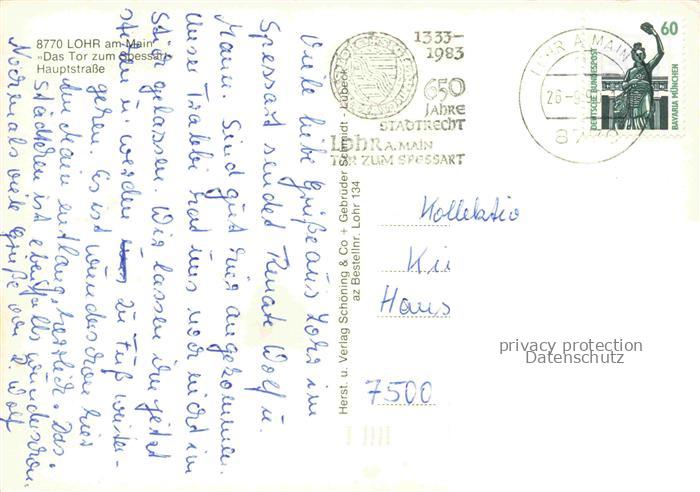 8770 LOHR am Main
»Das Tor zum Spessart«
Hauptstraße
Viele liebe Grüße aus Lohr im
Spessart sendet Renate Wolf u.
Mann. Sind gut hier angekommen.
Unser Trabbi hat uns noch nicht im
Stich gelassen. Wir lassen ihn jetzt
stehen u. werden zu Fuß weiter-
gehen. Es ist wunderschön hier
am Main entlang herrlich. Das
Städtchen ist ebenfalls wunderschön.
Nochmals viele Grüße von R. Wolf
Herst. u. Verlag Schöning & Co + Gebrüder Schmidt - Lübeck
az Bestellnr. Lohr 134
1333-
1983
650
JAHRE
STADTRECHT
LOHR A. MAIN
TOR ZUM SPESSART
LOHR A MAIN
26.-9
60
DEUTSCHE BUNDESPOST
BAVARIA MÜNCHEN
Kollektio
Kii
Haus
7500
privacy protection
Datenschutz